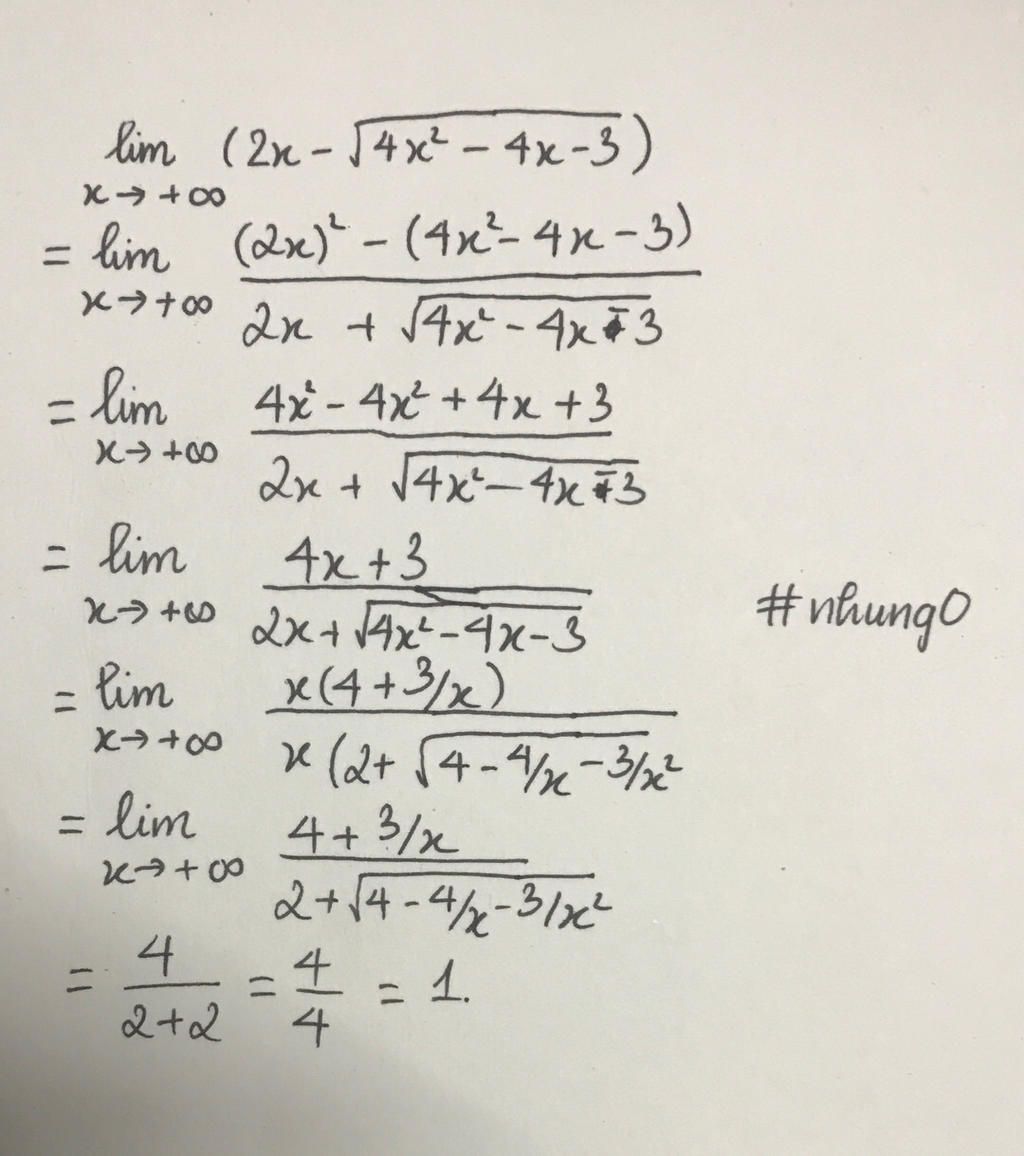 lim (2x - √(4x² - 4x - 3))
x → +∞
= lim ((2x)² - (4x² - 4x - 3)) / (2x + √(4x² - 4x - 3))
x → +∞
= lim (4x² - 4x² + 4x + 3) / (2x + √(4x² - 4x - 3))
x → +∞
= lim (4x + 3) / (2x + √(4x² - 4x - 3))
x → +∞
#nhung0
= lim x(4 + 3/x) / x(2 + √(4 - 4/x - 3/x²)
x → +∞
= lim (4 + 3/x) / (2 + √(4 - 4/x - 3/x²))
x → +∞
= 4/(2+2) = 4/4 = 1.